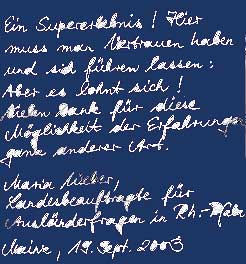 Ein Supererlebnis! Hier
muss man Vertrauen haben
und sich führen lassen:
Aber es lohnt sich!
Vielen Dank für diese
Möglichkeit der Erfahrung
ganz anderer Art.
Maria Weber,
Landesbeauftragte für
Ausländerfragen in Rh.-Pfalz
Mainz, 19. Sept. 2003